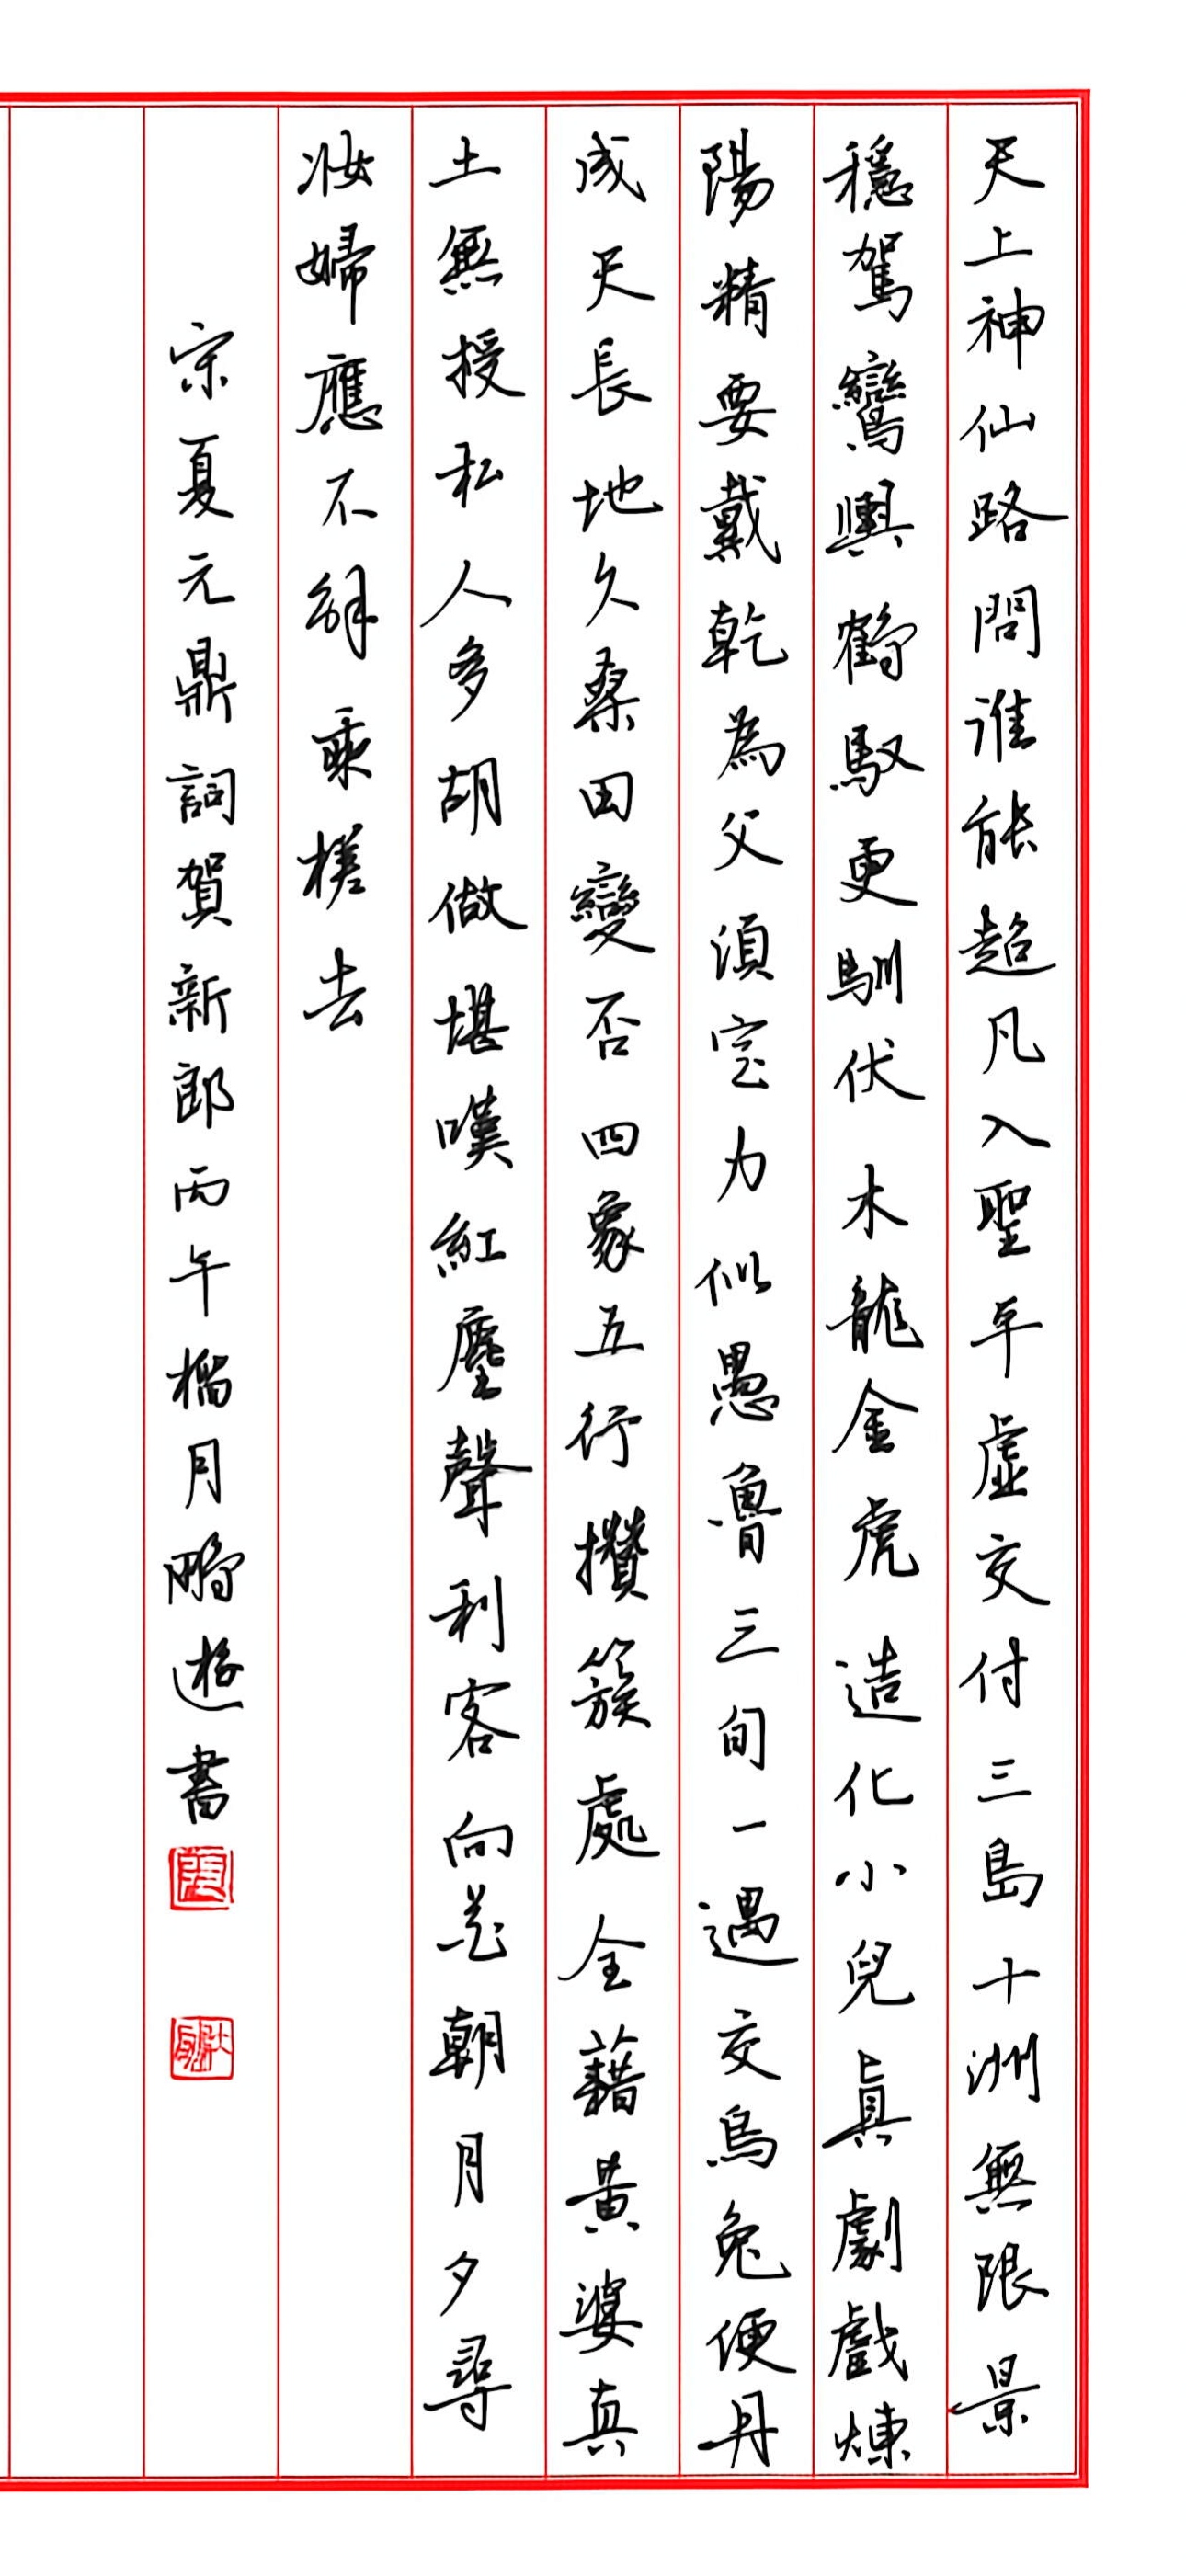 天上神仙路問誰能超凡入聖平虛交付三島十洲無限景
穩駕鸞輿鶴馭更馴伏木龍金虎造化小兒真劇戲煉
陽精要戴乾為父須定力似愚魯三旬一遇交烏兔便丹
成天長地久桑田變否四象五行攢簇處全藉黃婆真
土無授私人多胡做堪嘆紅塵聲利客向花朝月夕尋
妝婦應不解乘槎去
宗夏元鼎詞賀新郎丙午橘月鵬遊書